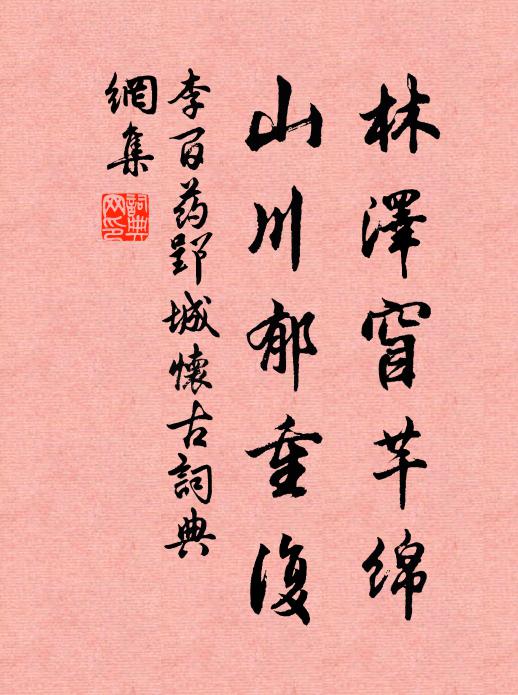 林澤窅芊绵
山川郁重復
李百药郢城懷古詞典
網集
詞典
网印